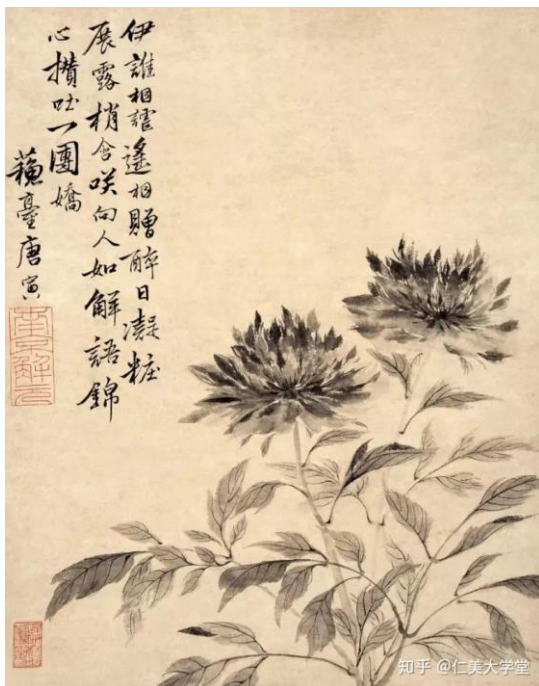 伊誰相謔遙相贈醉日凝粧
展露梢含咲向人如解語錦
心攢吐一團嬌
蘓臺唐寅
南京解元
知乎 @仁美大学堂